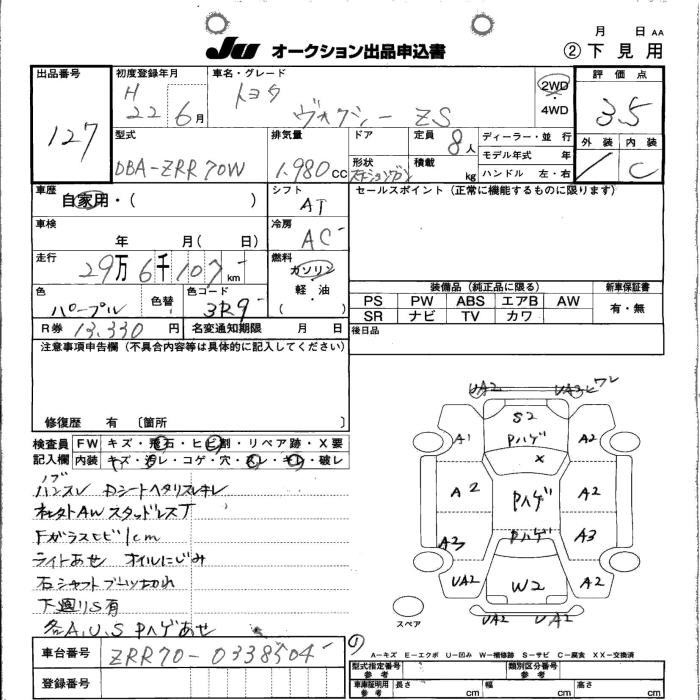 JU オークション出品申込書
月 日 AA
② 下見用
出品番号
127
初度登録年月
H
22 6月
車名・グレード
トヨタ
ヴォクシー ZS
2WD
・
4WD
評価点
3.5
外装 内装
C
型式
DBA-ZRR70W
排気量
1.980 cc
ドア
形状
ステーションワゴン
定員
8人
積載
kg
ディーラー・並 行
モデル年式 年
ハンドル 左・右
車歴
自家用・( )
シフト
AT
セールスポイント (正常に機能するものに限ります)
車検
年 月( 日)
冷房
AC
走行
29万6千107 km
燃料
ガソリン
軽・油
( )
色
パープル
色替
色コード
3R9
装備品 (純正品に限る)
新車保証書
PS PW ABS エアB AW
SR ナビ TV カワ
有・無
R券 13,330 円
名変通知期限 月 日
後日品
注意事項申告欄 (不具合内容等は具体的に記入してください)
修復歴 有 〔箇所 〕
検査員
記入欄
FW キズ・飛石・ヒビ割・リペア跡・X要
内装 キズ・汚レ・コゲ・穴・スレ・キレ・破レ
ノブ
ハンスレ Dシートヘタリスレキレ
社外AW スタッドレスT
Fガラスヒビ1cm
ライトあせ オイルにじみ
右シャフトブーツ切れ
下廻りS有
各A.U.S Pハゲあせ
車台番号
ZRR70-0338504
登録番号
UA2
UA3ヒワレ
S2
Pハゲ
X
A1
A2
A2
Pハゲ
A2
A3
Pハゲ
A3
UA2
W2
A2
UA2
UA2
スペア
A-キズ E-エクボ U-凹み W-補修跡 S-サビ C-腐食 XX-交換済
型式指定番号
参考
類別区分番号
参考
車庫証明用
参考
長さ cm 幅 cm 高さ cm